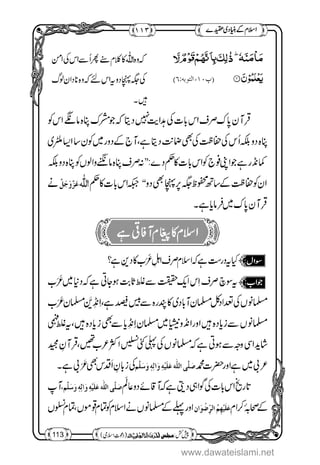 اسلام کے بنیادی عقیدے
(۱۱۳)
مَاْمَنَهٗ ؕ ذٰلِكَ بِاَنَّهُمْ قَوْمٌ لَّا
یَعْلَمُوْنَ ۠ (پ۱۰، التوبہ: ۶)
کہ وہ اللہ کا کلام سنے پھر اُسے اس کی امن
کی جگہ پہنچا دو یہ اس لئے کہ وہ نادان لوگ
ہیں۔
قرآنِ پاک صرف اس بات کی ہدایت نہیں دیتا کہ جو مشرک پناہ مانگے تو اس کو
پناہ دو بلکہ اُس کی حفاظت کی یقین دہانی بھی دیتا ہے، آج کے دور میں کون سا ایسا ملٹری
کمانڈر ہے جو اپنی فوج کو اس بات کا حکم دے: ’’نہ صرف پناہ مانگنے والوں کو پناہ دو بلکہ
ان کو حفاظت کے ساتھ محفوظ جگہ پر بھی پہنچا دو‘‘ جبکہ اس بات کا حکم اللہ عَزَّوَجَلَّ نے
قرآنِ پاک میں فرمایا ہے۔
اسلام کا پیغام آفاقی ہے
سوال کیا یہ درست ہے کہ اسلام صرف اہلِ عَرَب کا دین ہے؟
جواب یہ سوچ صرف اس ایک حقیقت سے غلط ثابت ہو جاتی ہے کہ دنیا میں عَرَب
مسلمانوں کی تعداد کل مسلمان آبادی کا پندرہ سے بیس فیصد ہے، اِنڈین مسلمان عَرَب
مسلمانوں سے زیادہ ہیں اور انڈونیشیا میں مسلمان اِنڈیا سے بھی زیادہ ہیں، یہ غلط فہمی
شاید اسی وجہ سے ہوتی ہے کہ مسلمانوں کی پہلی کئی نسلیں اکثر عَرَبی تھیں، قرآنِ مجید
عربی میں ہے اور حضرت محمد صَلَّی اللهُ عَلَیْهِ وَاٰلِهٖ وَسَلَّم کی زبانِ اَقدس بھی عَرَبی ہے۔
تاریخ اس بات کی گواہی دیتی ہے کہ آقائے دو عالَم صَلَّی اللهُ عَلَیْهِ وَاٰلِهٖ وَسَلَّم، آپ
کے صحابۂ کرام عَلَیْهِمُ الرِّضْوَان اور پہلے کے مسلمانوں نے اسلام کو تمام قوموں، تمام نسلوں
113
پیش کش: مجلس
(دعوتِ اسلامی)
www.dawateislami.net